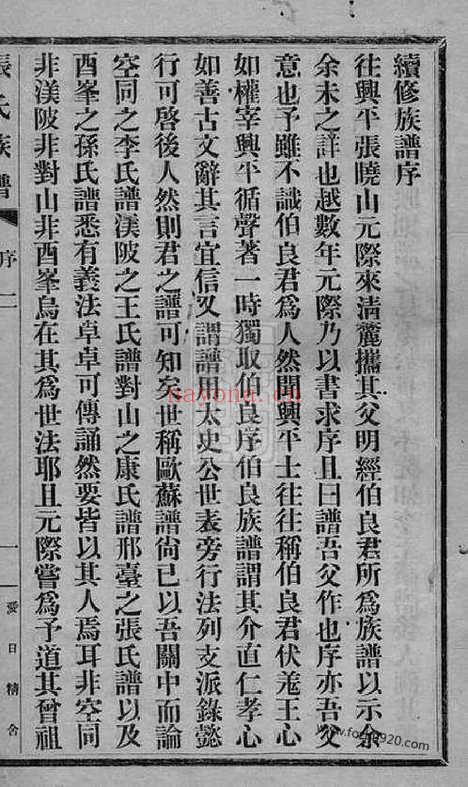 續修族譜序
往興平張曉山元際來清麓攜其父明經伯良君所為族譜以示余
余未之詳也越數年元際乃以書求序且曰譜吾父作也序亦吾父
意也予雖不識伯良君為人然聞興平士往往稱伯良君伏羌王心
如權宰興平循聲著一時獨取伯良序伯良族譜謂其介直仁孝心
如善古文辭其言宜信又謂譜用太史公世表旁行法列支派錄懿
行可啓後人然則君之譜可知矣世稱歐蘇譜尚已以吾關中而論
空同之李氏譜渼陂之王氏譜對山之康氏譜邢臺之張氏譜以及
酉峯之孫氏譜悉有義法卓卓可傳誦然要皆以其人焉耳非空同
非渼陂非對山非酉峯烏在其為世法耶且元際嘗為予道其曾祖
張氏族譜
序
二
一
愛日精舍
nayona.cn
www.foxue920.com